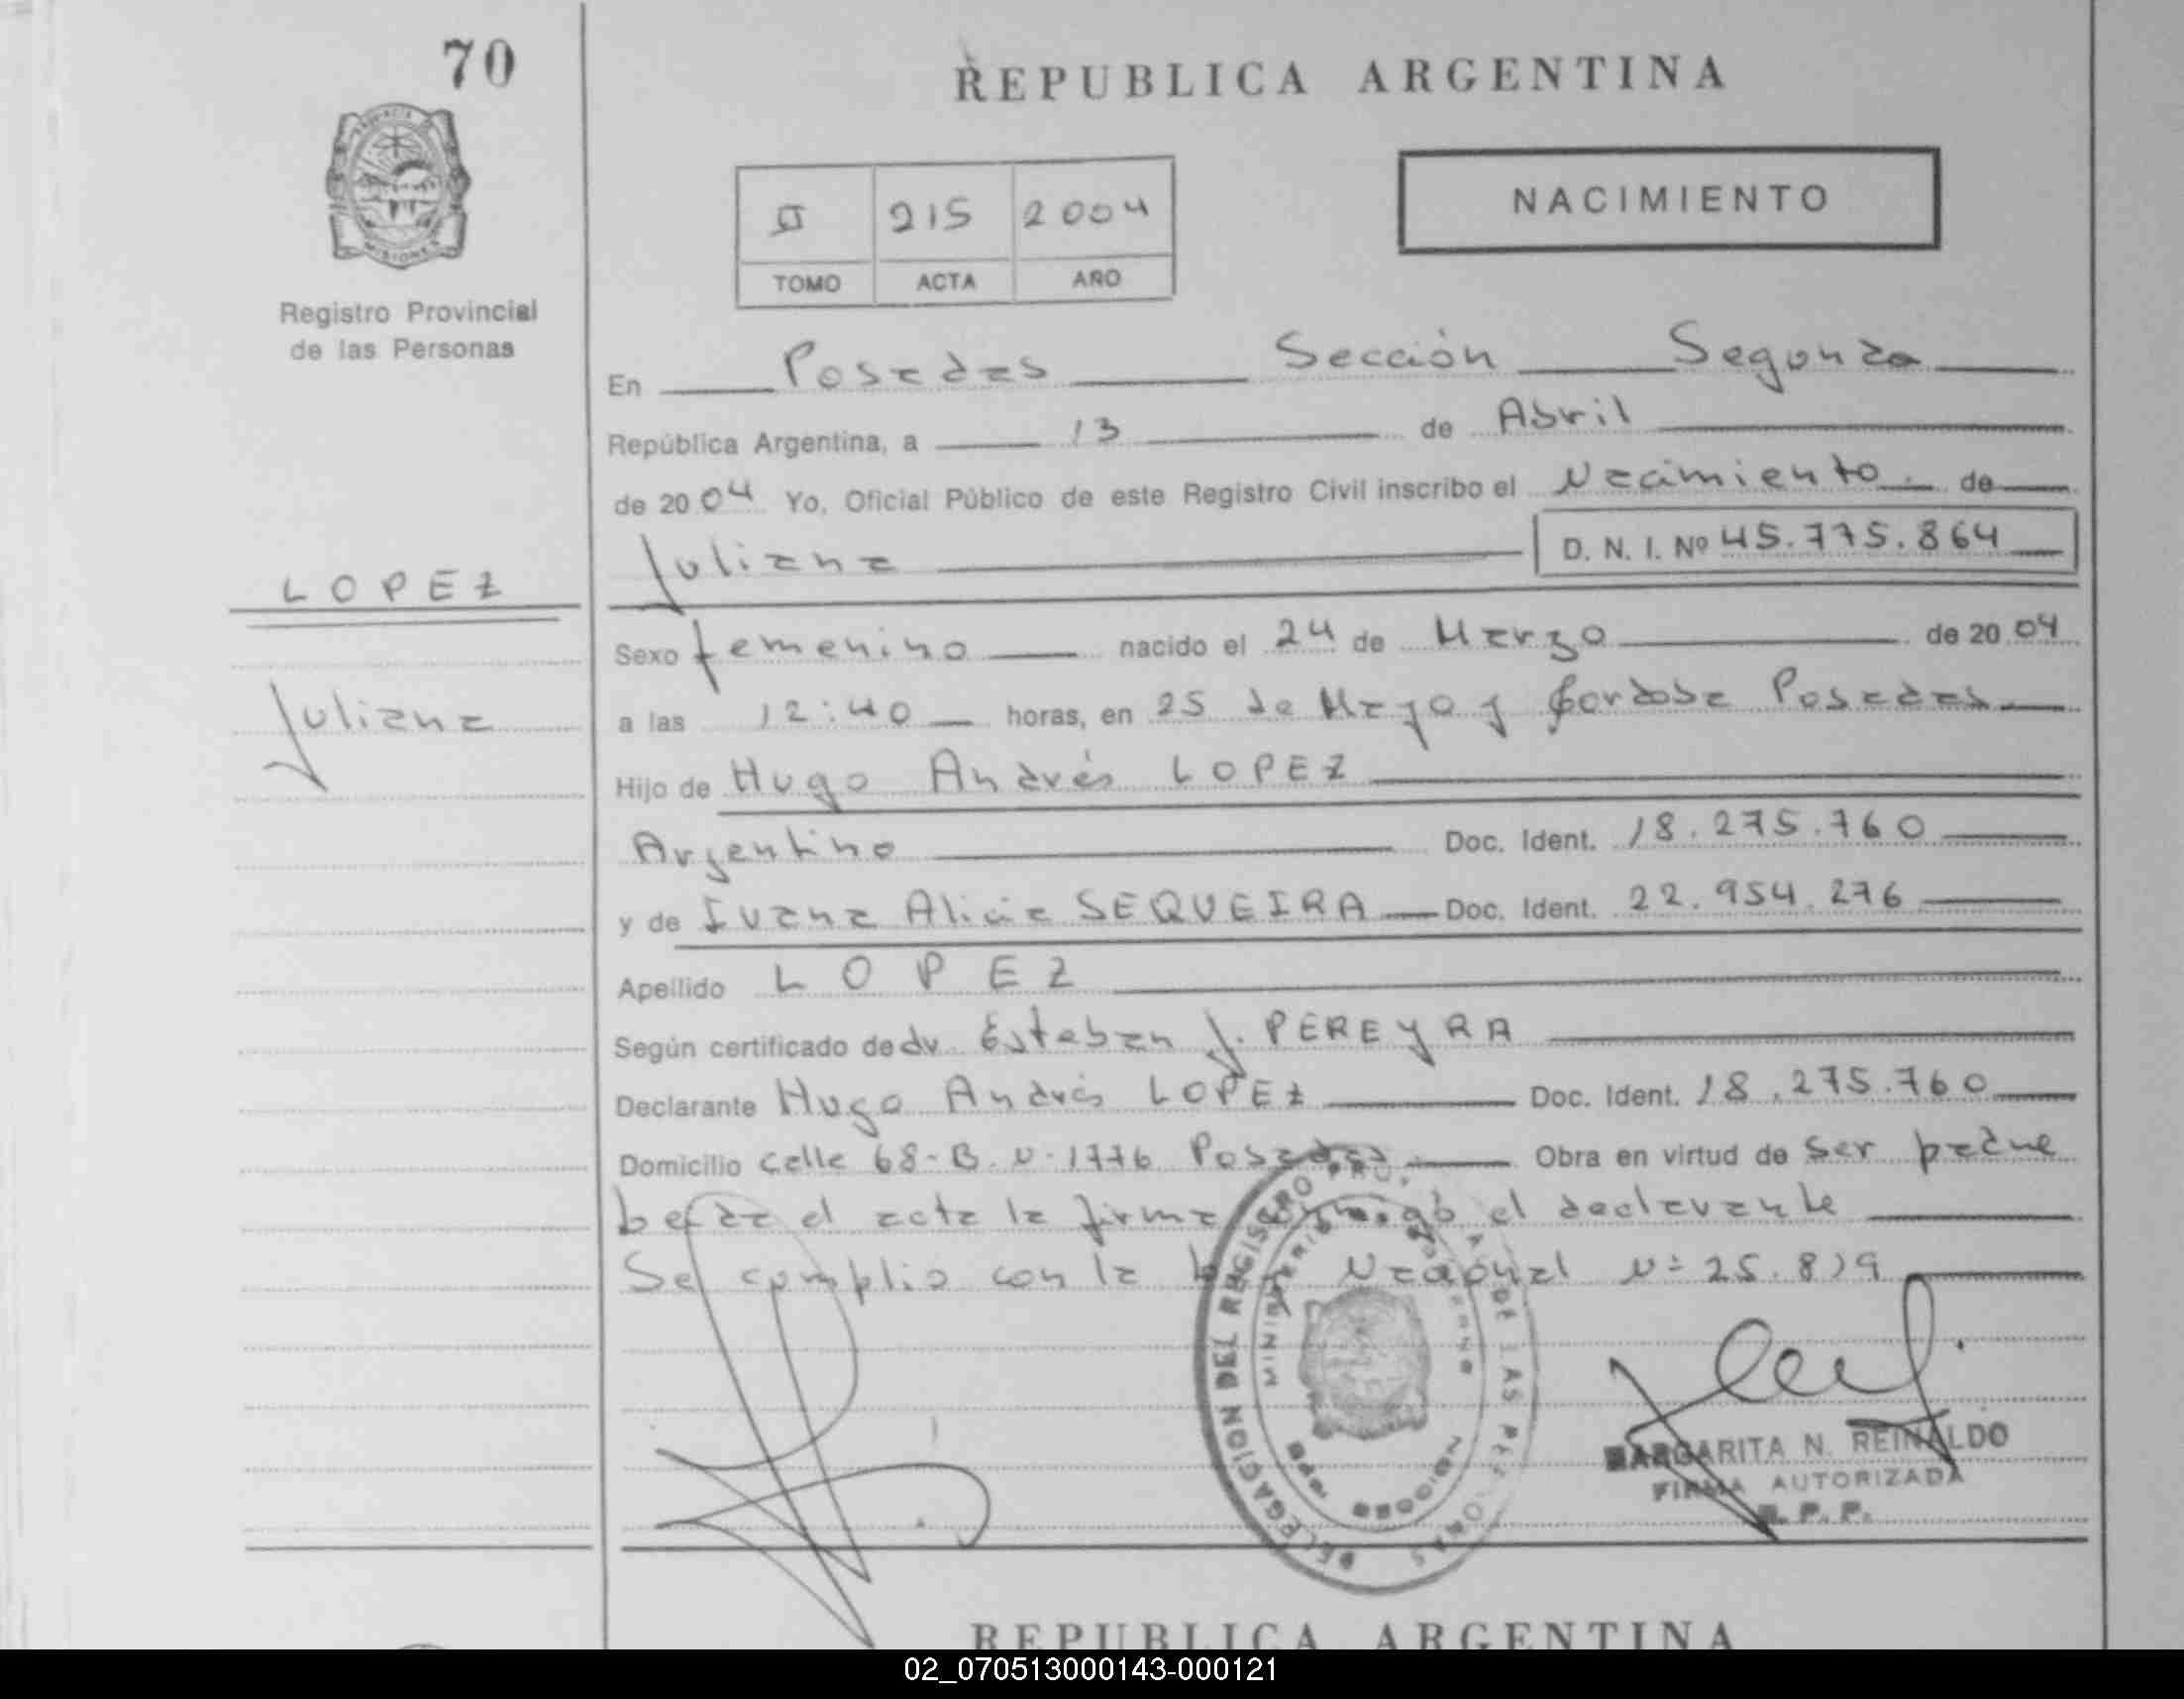 70
REPUBLICA ARGENTINA
NACIMIENTO
II 215 2004
TOMO ACTA AÑO
Registro Provincial
de las Personas
En Posadas Sección Segunda
República Argentina, a 13 de Abril
de 2004 Yo, Oficial Público de este Registro Civil inscribo el Nacimiento de
Juliana D. N. I. Nº 45.775.864
LOPEZ
Juliana
Sexo femenino nacido el 24 de Marzo de 2004
a las 12:40 horas, en 25 de Mayo y Cordoba Posadas
Hijo de Hugo Andrés LOPEZ
Argentino Doc. Ident. 18.275.760
y de Ivana Alicia SEQUEIRA Doc. Ident. 22.954.276
Apellido LOPEZ
Según certificado de dr Esteban J. PEREYRA
Declarante Hugo Andrés LOPEZ Doc. Ident. 18.275.760
Domicilio calle 68-B. N. 1776 Posadas Obra en virtud de ser padre
el acta la firma el declarante
Se cumplio con la Nacional Nº 25.819
DELEGACION DEL REGISTRO DE LAS PERSONAS
MINISTERIO
MISIONES
MARGARITA N. REINALDO
FIRMA AUTORIZADA
R. P. P.
REPUBLICA ARGENTINA
02_070513000143-000121